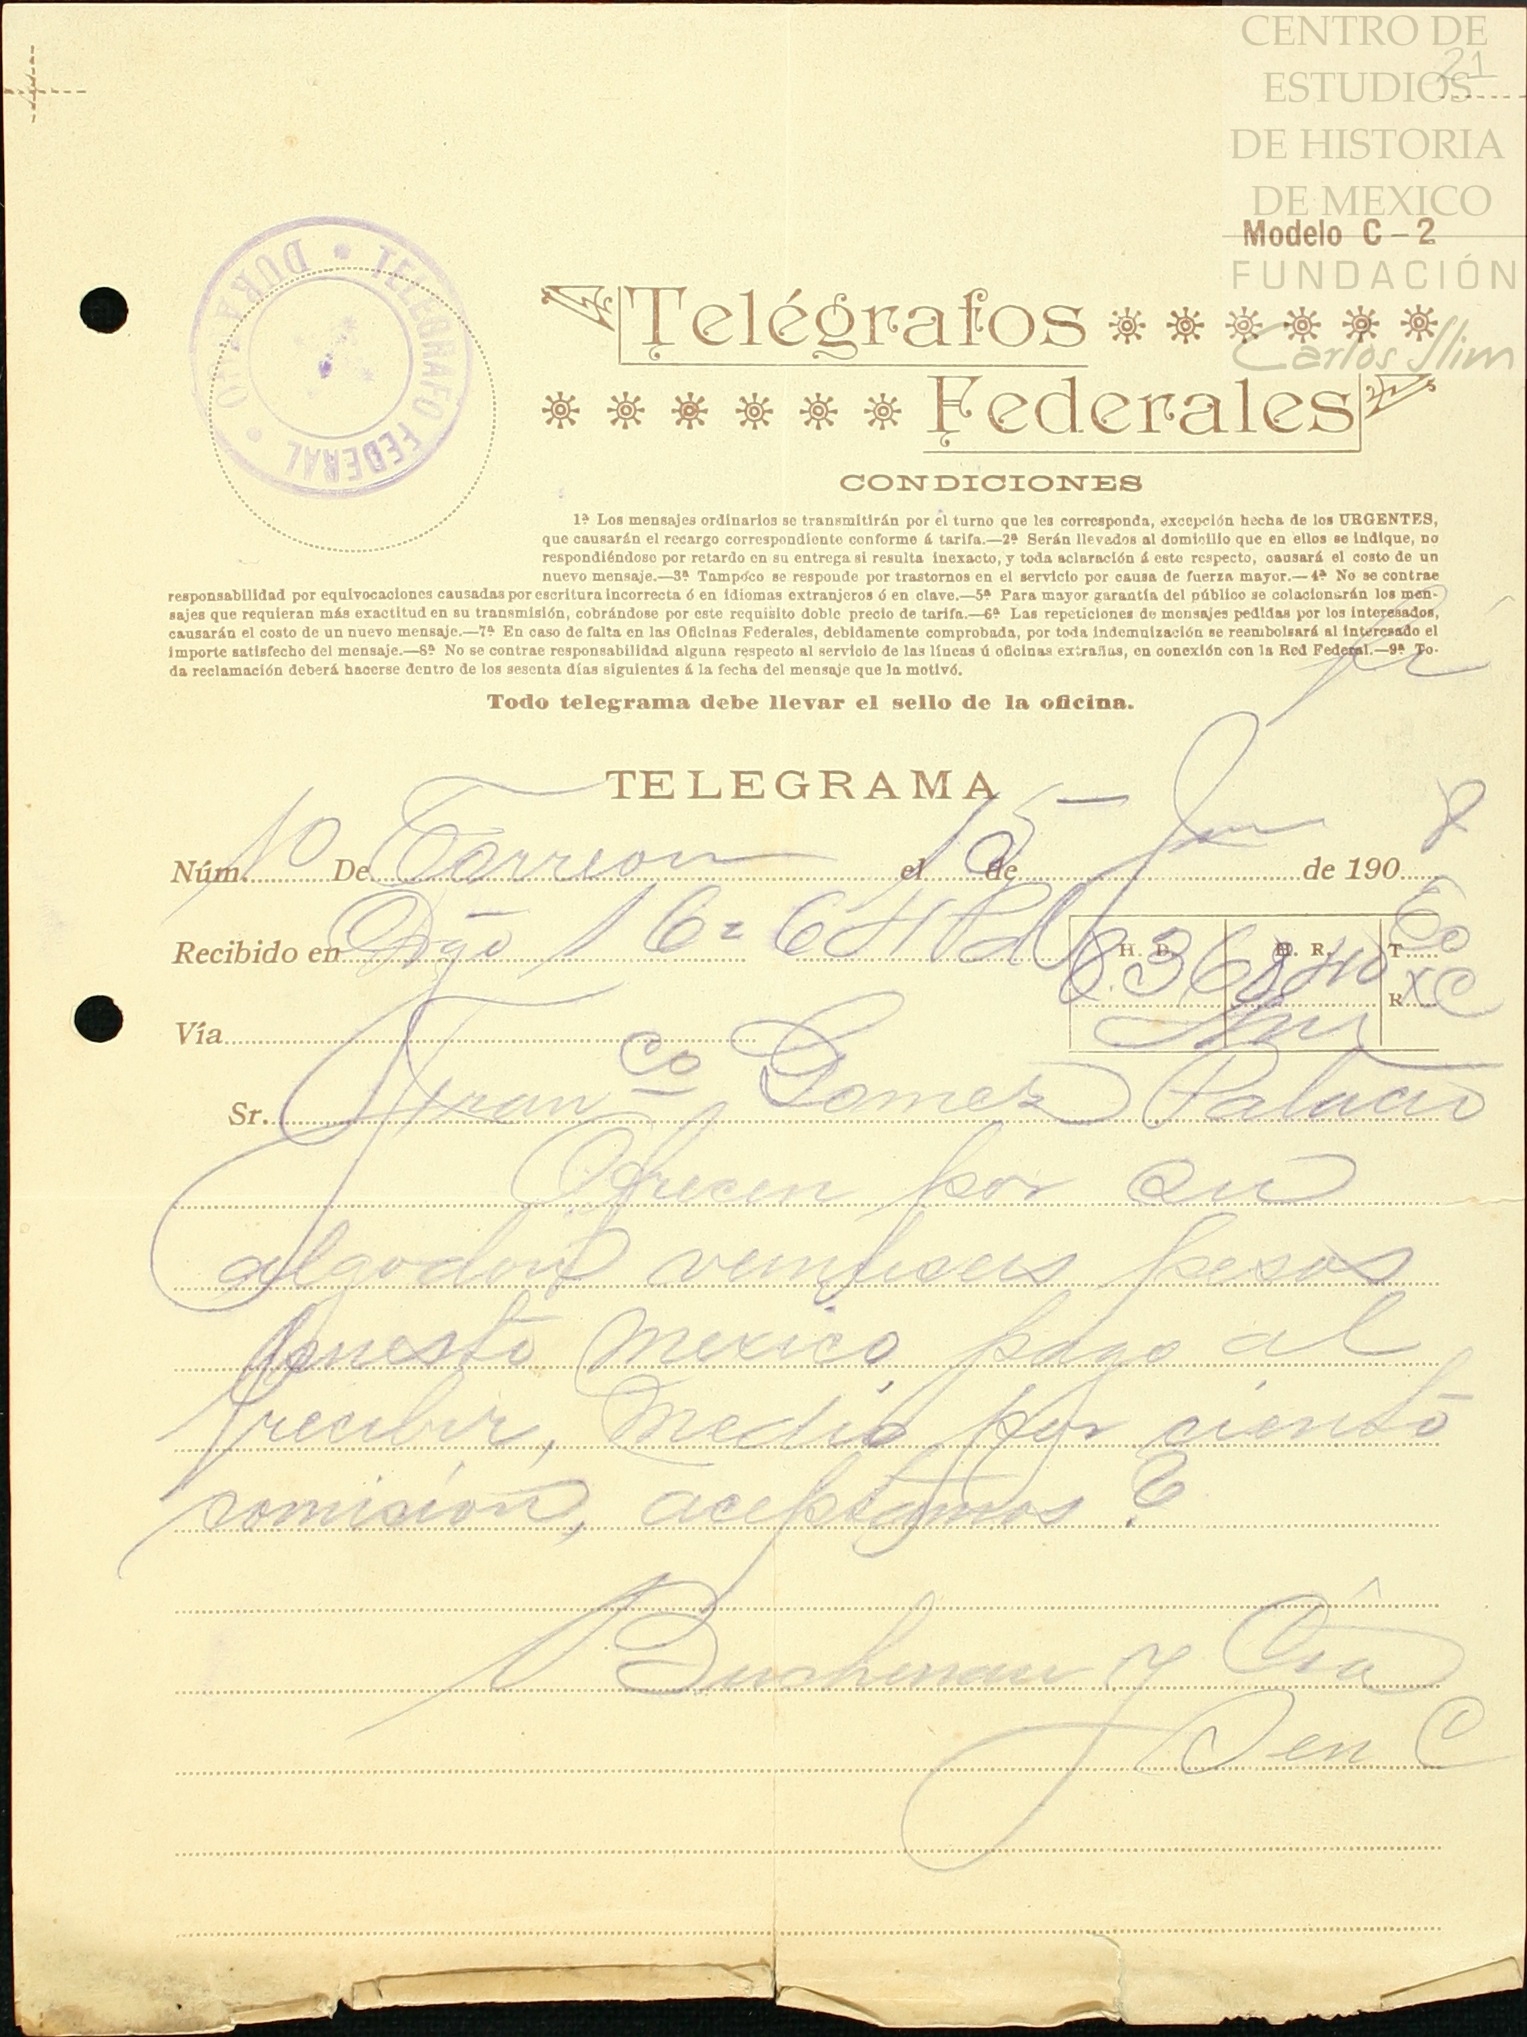 CENTRO DE
21
ESTUDIOS
DE HISTORIA
DE MEXICO
Modelo C-2
FUNDACIÓN
Carlos Slim
TELEGRAFO FEDERAL • OF. DURANGO •
Telégrafos
Federales
CONDICIONES
1ª Los mensajes ordinarios se transmitirán por el turno que les corresponda, excepción hecha de los URGENTES,
que causarán el recargo correspondiente conforme á tarifa.—2ª Serán llevados al domicilio que en ellos se indique, no
respondiéndose por retardo en su entrega si resulta inexacto, y toda aclaración á este respecto, causará el costo de un
nuevo mensaje.—3ª Tampoco se responde por trastornos en el servicio por causa de fuerza mayor.—4ª No se contrae
responsabilidad por equivocaciones causadas por escritura incorrecta ó en idiomas extranjeros ó en clave.—5ª Para mayor garantía del público se colacionarán los men-
sajes que requieran más exactitud en su transmisión, cobrándose por este requisito doble precio de tarifa.—6ª Las repeticiones de mensajes pedidas por los interesados,
causarán el costo de un nuevo mensaje.—7ª En caso de falta en las Oficinas Federales, debidamente comprobada, por toda indemnización se reembolsará al interesado el
importe satisfecho del mensaje.—8ª No se contrae responsabilidad alguna respecto al servicio de las líneas ú oficinas extrañas, en conexión con la Red Federal.—9ª To-
da reclamación deberá hacerse dentro de los sesenta días siguientes á la fecha del mensaje que la motivó.
Todo telegrama debe llevar el sello de la oficina.
TELEGRAMA
Núm. 10 De Torreon el 15 de de 190 8
Recibido en Dgo 16 = 64 Pd H. D. 6.36 H. R. 840 T
R
Vía
Sr. Franco Gomez Palacio
Ofrecen por su
algodon veintiseis pesos
puesto Mexico, pago al
recibir, medio por ciento
comision, aceptamos?
Buchenau y Cia
S en C